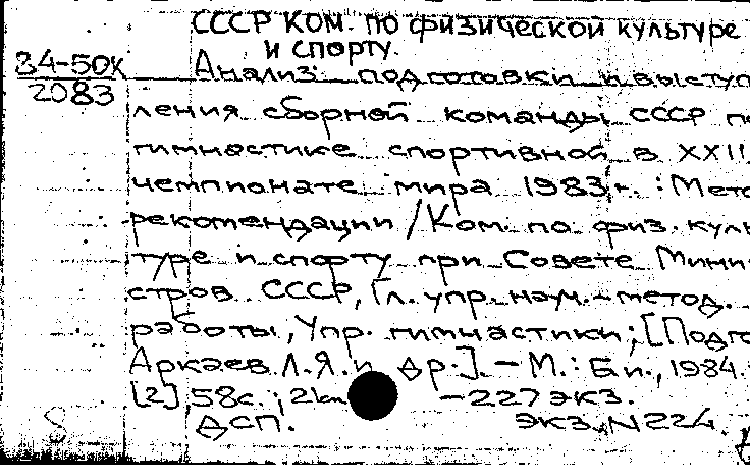 СССР КОМ. ПО физической культуре
и спорту.
84-50К
2083
Анализ подготовки и выступ
ления сборной команды СССР по
гимнастике спортивной в XXII
чемпионате мира 1983 г. : Мето
рекомендации / Ком. по физ. куль
туре и спорту при Совете Мини
стров СССР, Гл. упр. науч.-метод.
работы, Упр. гимнастики; [Подго
Аркаев Л.Я. и др.]. — М.: Б.и., 1984.
[2], 58с.; 21см — 227 экз.
ДСП. экз. N 224.
8